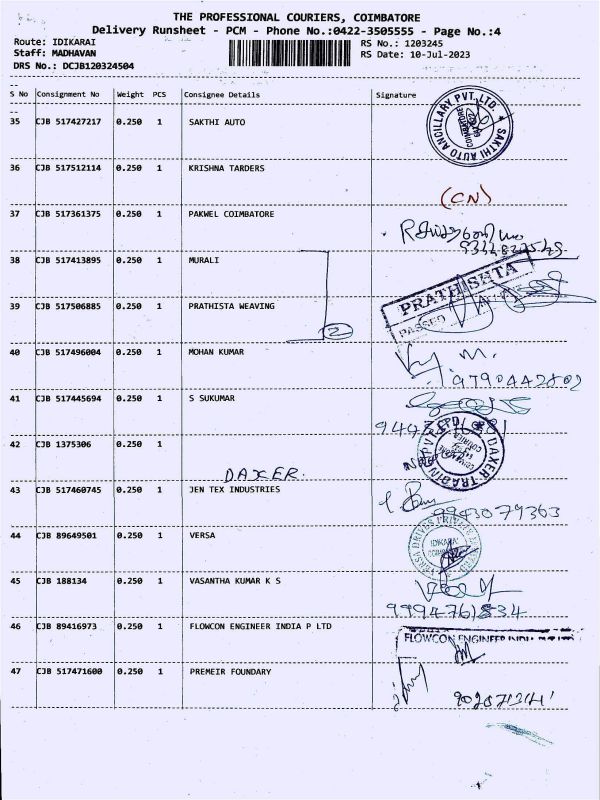 THE PROFESSIONAL COURIERS, COIMBATORE
Delivery Runsheet - PCM - Phone No.:0422-3505555 - Page No.:4
Route: IDIKARAI RS No.: 1203245
Staff: MADHAVAN RS Date: 10-Jul-2023
DRS No.: DCJB120324504
S No Consignment No Weight PCS Consignee Details Signature
35 CJB 517427217 0.250 1 SAKTHI AUTO
SAKTHI AUTO ANCILLARY PVT. LTD.
36 CJB 517512114 0.250 1 KRISHNA TARDERS
(CN)
37 CJB 517361375 0.250 1 PAKWEL COIMBATORE
38 CJB 517413895 0.250 1 MURALI
39 CJB 517506885 0.250 1 PRATHISTA WEAVING
PRATHISHTA
PASSED
2
40 CJB 517496004 0.250 1 MOHAN KUMAR
9790442802
41 CJB 517445694 0.250 1 S SUKUMAR
42 CJB 1375306 0.250 1
DAXER.
DAXER
43 CJB 517460745 0.250 1 JEN TEX INDUSTRIES
9943079363
44 CJB 89649501 0.250 1 VERSA
VERSA DRIVES PRIVATE
IDIKARAI
45 CJB 188134 0.250 1 VASANTHA KUMAR K S
9994761834
46 CJB 89416973 0.250 1 FLOWCON ENGINEER INDIA P LTD
FLOWCON ENGINEER
47 CJB 517471600 0.250 1 PREMEIR FOUNDARY